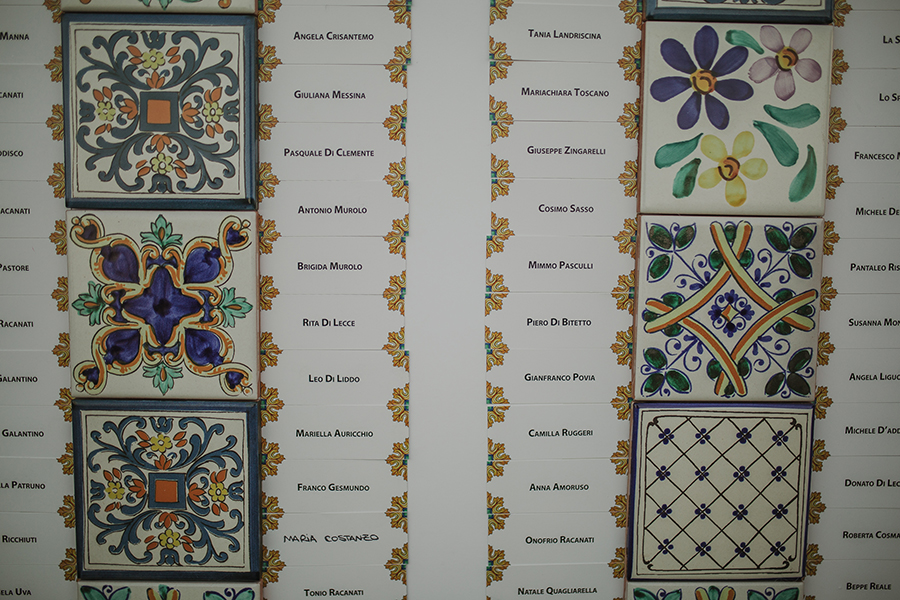 Manna
canati
odisco
Racanati
Pastore
Racanati
Galantino
Galantino
lla Patruno
Ricchiuti
ela Uva
Angela Crisantemo
Giuliana Messina
Pasquale Di Clemente
Antonio Murolo
Brigida Murolo
Rita Di Lecce
Leo Di Liddo
Mariella Auricchio
Franco Gesmundo
MARIA COSTANZO
Tonio Racanati
Tania Landriscina
Mariachiara Toscano
Giuseppe Zingarelli
Cosimo Sasso
Mimmo Pasculli
Piero Di Bitetto
Gianfranco Povia
Camilla Ruggeri
Anna Amoruso
Onofrio Racanati
Natale Quagliarella
La S
Lo Sp
Francesco M
Michele De
Pantaleo Ris
Susanna Mon
Angela Liguo
Michele D'add
Donato Di Lec
Roberta Cosma
Beppe Reale